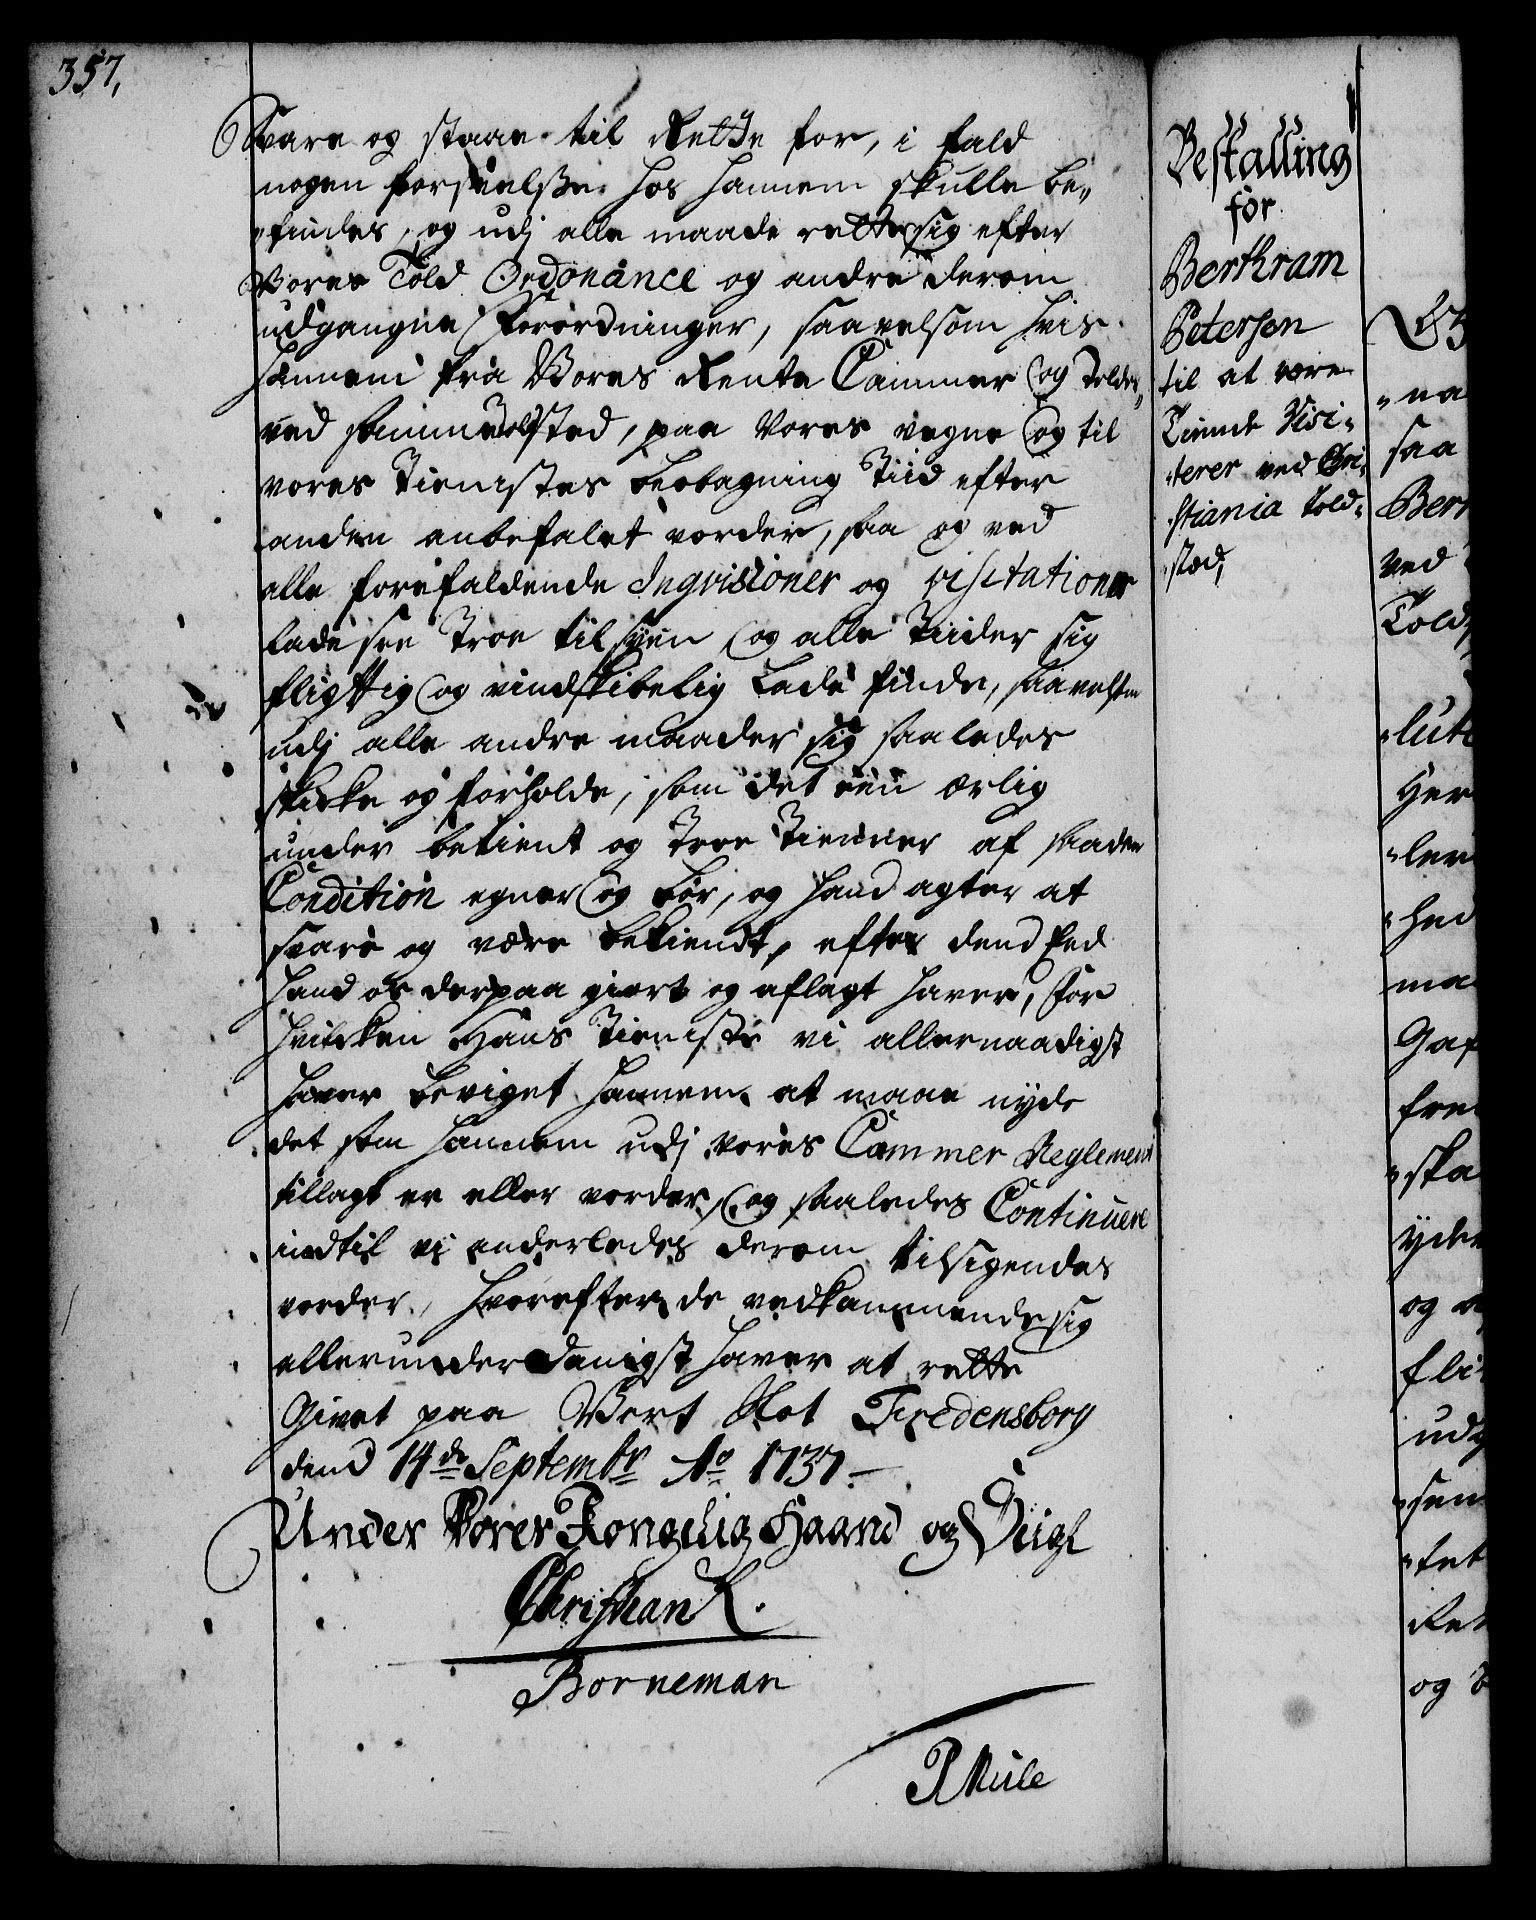 357.
Svare og staae til Rette for, i fald
nogen forseelse hos hannem skulle be-
-findes, og udj alle maade rette sig efter
Vores Told Ordonance og andre derom
udgangne Forordninger, saavelsom hvis
hannem fra Vores Rente Cammer og Told-
ved samme sted, paa Vores vegne og til
vores Tienistes Tiid efter
anden anbefalet vorder, saa og ved
alle forefaldende Inqvisioner og visitationer
lade see Troe tilsyn og alle Tiider sig
fligttig og vindskibelig lade finde, saavelsom
udj alle andre maader sig saaledes
skicke og forholde, som det een ærlig
under betient og Troe Tienner af saaden
Condition egner og bør, og hand agter at
svare og være bekiendt, efter dend Eed
hand os derpaa giort og aflagt haver, for
hvilcken Hans Tieniste vi allernaadigst
haver beviget hannem at maae nyde
det som hannem udj vores Cammer Reglement
tillagt er eller vorder, og saaledes Continuere
indtil vj anderledes derom tilsigendes
vorder. hvorefter de vedkammende sig
allerunderdanigst haver at rette
Givet paa Vort Slot Fredensborg
dend 14de Septembr Ao 1737.
Under Vores Kongelig Haand og Seigl
Christian R.
Borneman
P Mule
Bestalling
for
Berthram
Petersen
til at være
Tinnde Visi-
-terer ved Chri-
-stiania Told-
-sted,
-na
saa
Ber
ved
Told
-lut
Her
-ler
-hed
ma
Gaf
fre
-ska
yde
og
fli
ud
-sen
-tet
Ret
og